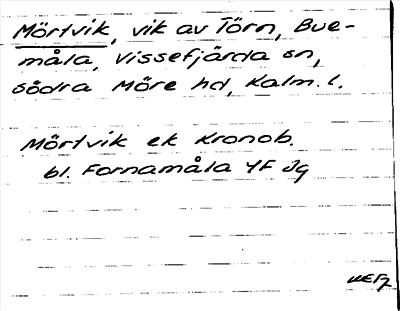 Mörtvik, vik av Törn, Bue-
måla, Vissefjärda sn,
Södra Möre hd, Kalm. l.
Mörtvik ek Kronob.
bl. Fornamåla YF Jg